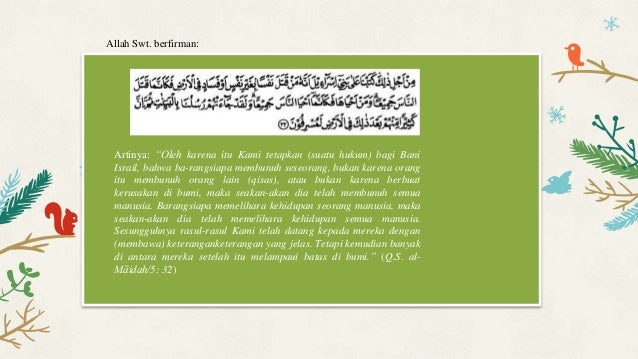 Allah Swt. berfirman:
مِنْ اَجْلِ ذٰلِكَ كَتَبْنَا عَلٰى بَنِيْٓ اِسْرَاۤءِيْلَ اَنَّهٗ مَنْ قَتَلَ نَفْسًا بِغَيْرِ نَفْسٍ اَوْ فَسَادٍ فِى الْاَرْضِ فَكَاَنَّمَا قَتَلَ
النَّاسَ جَمِيْعًا وَمَنْ اَحْيَاهَا فَكَاَنَّمَآ اَحْيَا النَّاسَ جَمِيْعًا وَلَقَدْ جَاۤءَتْهُمْ رُسُلُنَا بِالْبَيِّنٰتِ ثُمَّ اِنَّ
كَثِيْرًا مِّنْهُمْ بَعْدَ ذٰلِكَ فِى الْاَرْضِ لَمُسْرِفُوْنَ ﴿٣٢﴾
Artinya: “Oleh karena itu Kami tetapkan (suatu hukum) bagi Bani
Israil, bahwa ba-rangsiapa membunuh seseorang, bukan karena orang
itu membunuh orang lain (qisas), atau bukan karena berbuat
kerusakan di bumi, maka seakan-akan dia telah membunuh semua
manusia. Barangsiapa memelihara kehidupan seorang manusia, maka
seakan-akan dia telah memelihara kehidupan semua manusia.
Sesungguhnya rasul-rasul Kami telah datang kepada mereka dengan
(membawa) keteranganketerangan yang jelas. Tetapi kemudian banyak
di antara mereka setelah itu melampaui batas di bumi.” (Q.S. al-
Māidah/5: 32)